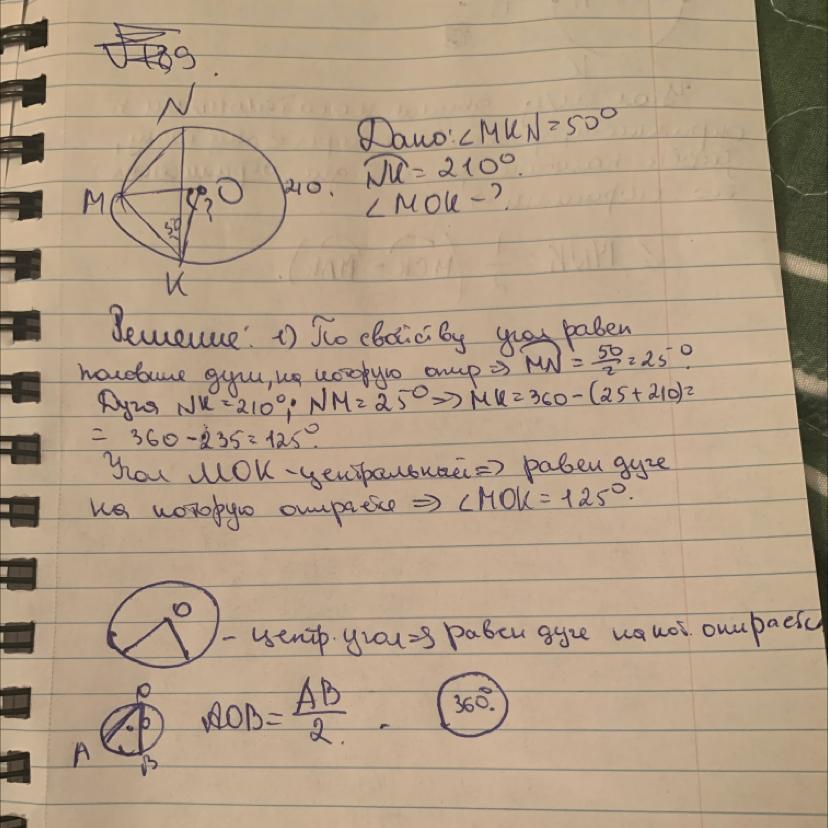 N
M
O
210.
50
?
K
Дано: ∠MKN=50°
NK=210°.
∠MOK-?
Решение: 1) По свойству угол равен
половине дуги, на которую опир ⇒ MN = 50/2 = 25°
Дуга NK=210°; NM=25° ⇒ MK=360-(25+210)=
= 360-235=125°.
Угол MOK - центральный ⇒ равен дуге
на которую опирается ⇒ ∠MOK=125°.
O
- центр. угол ⇒ равен дуге на кот. опирается
O
A
B
AOB = AB/2.
360°.